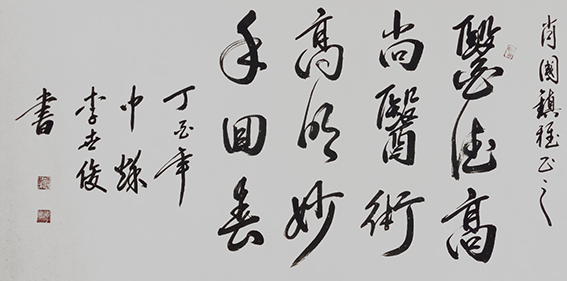 肖國鎮雅正之
醫德高
尚醫術
高明妙
手回春
丁酉年
中秋
李世俊
書